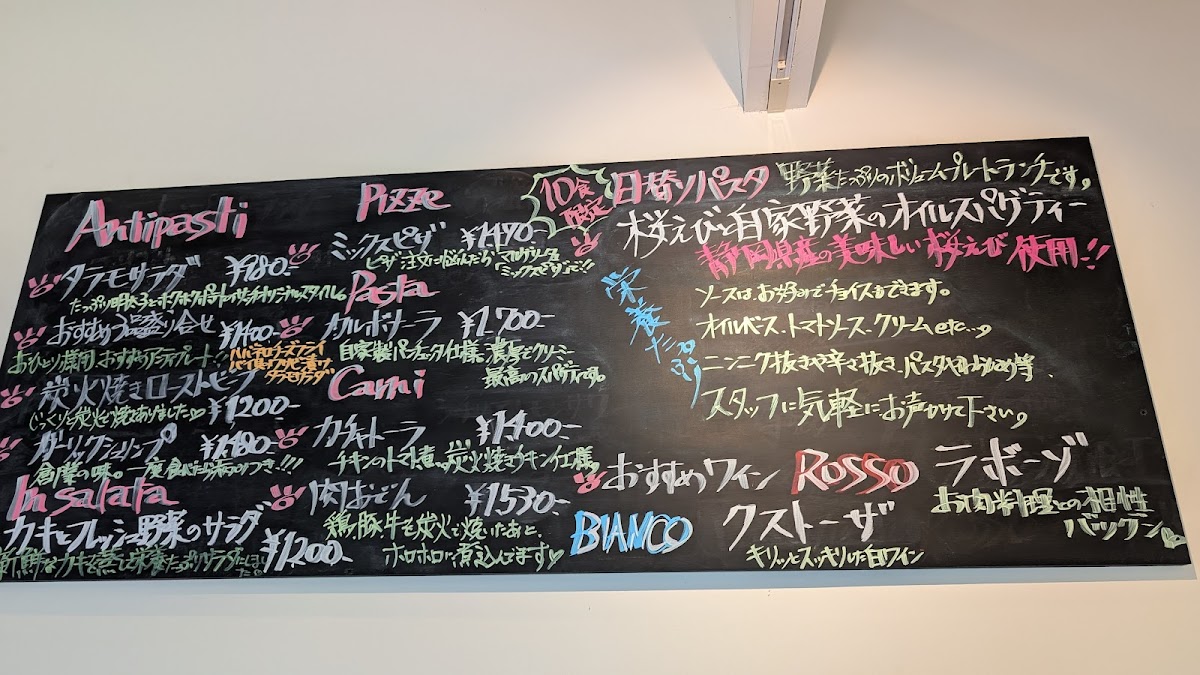 Antipasti
タラモサラダ ¥980.-
おすすめ3品盛り合せ ¥1400-
おひとり様用、おすすめアンティプレート!!
炭火焼きローストビーフ
じっくりと炭火で焼きあげました♡ ¥1200-
ガーリックシュリンプ ¥1480-
創業の味。一度食べたら
Insalata
カキとフレッシュ野菜のサラダ
¥1200-
Pizze
ミックスピザ ¥1490.-
Pasta
カルボナーラ ¥1.700-
自家製パンチェッタ仕様。濃厚でクリーミー
最高のスパゲティです。
Carni
カチャトーラ ¥1400-
チキンのトマト煮。炭火焼きチキン仕様。
肉おでん ¥1530-
鶏、豚、牛を炭火で焼いたあと、
ホロホロに煮込んでます♡
10食限定
日替りパスタ 野菜たっぷりのボリュームプレートランチです。
桜えびと自家野菜のオイルスパゲティー
静岡県産の美味しい桜えび使用!!
栄養たっぷり
ソースは、お好みでチョイスもできます。
オイルベース、トマトソース、クリームetc...
ニンニク抜きや辛さ抜き、パスタやわらかめ等
スタッフに気軽にお声かけて下さい。
おすすめワイン ROSSO ラボーゾ
お肉料理との相性
バツグン
BIANCO クストーザ
キリッとスッキリした白ワイン